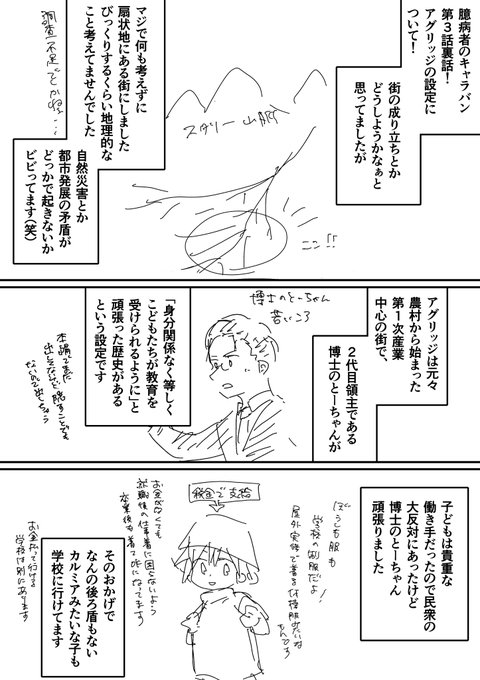 臆病者のキャラバン
第3話裏話！
アグリッジの設定に
ついて！
街の成り立ちとか
どうしようかなぁと
思ってましたが
スタリー山脈
ココ!!
マジで何も考えずに
扇状地にある街にしました
びっくりするくらい地理的な
こと考えてませんでした
調査不足でかね…
自然災害とか
都市発展の矛盾が
どっかで起きないか
ビビってます(笑)
アグリッジは元々
農村から始まった
第1次産業
中心の街で、
2代目領主である
博士のとーちゃんが
博士のとーちゃん
若いころ
「身分関係なく等しく
こどもたちが教育を
受けられるように」と
頑張った歴史がある
という設定です
本編でまだ
出てないけど
子どもは貴重な
働き手だったので民衆の
大反対にあったけど
博士のとーちゃん
頑張りました
ぼうしも服も
学校の制服だよ！
屋外実習で着る体操服みたいな
もんです
税金で支給
お金がなくても
就職後の仕事着に困らないよう
卒業後も着てOKになってます
そのおかげで
なんの後ろ盾もない
カルミアみたいな子も
学校に行けてます
お金払って行ける
学校は別にあります